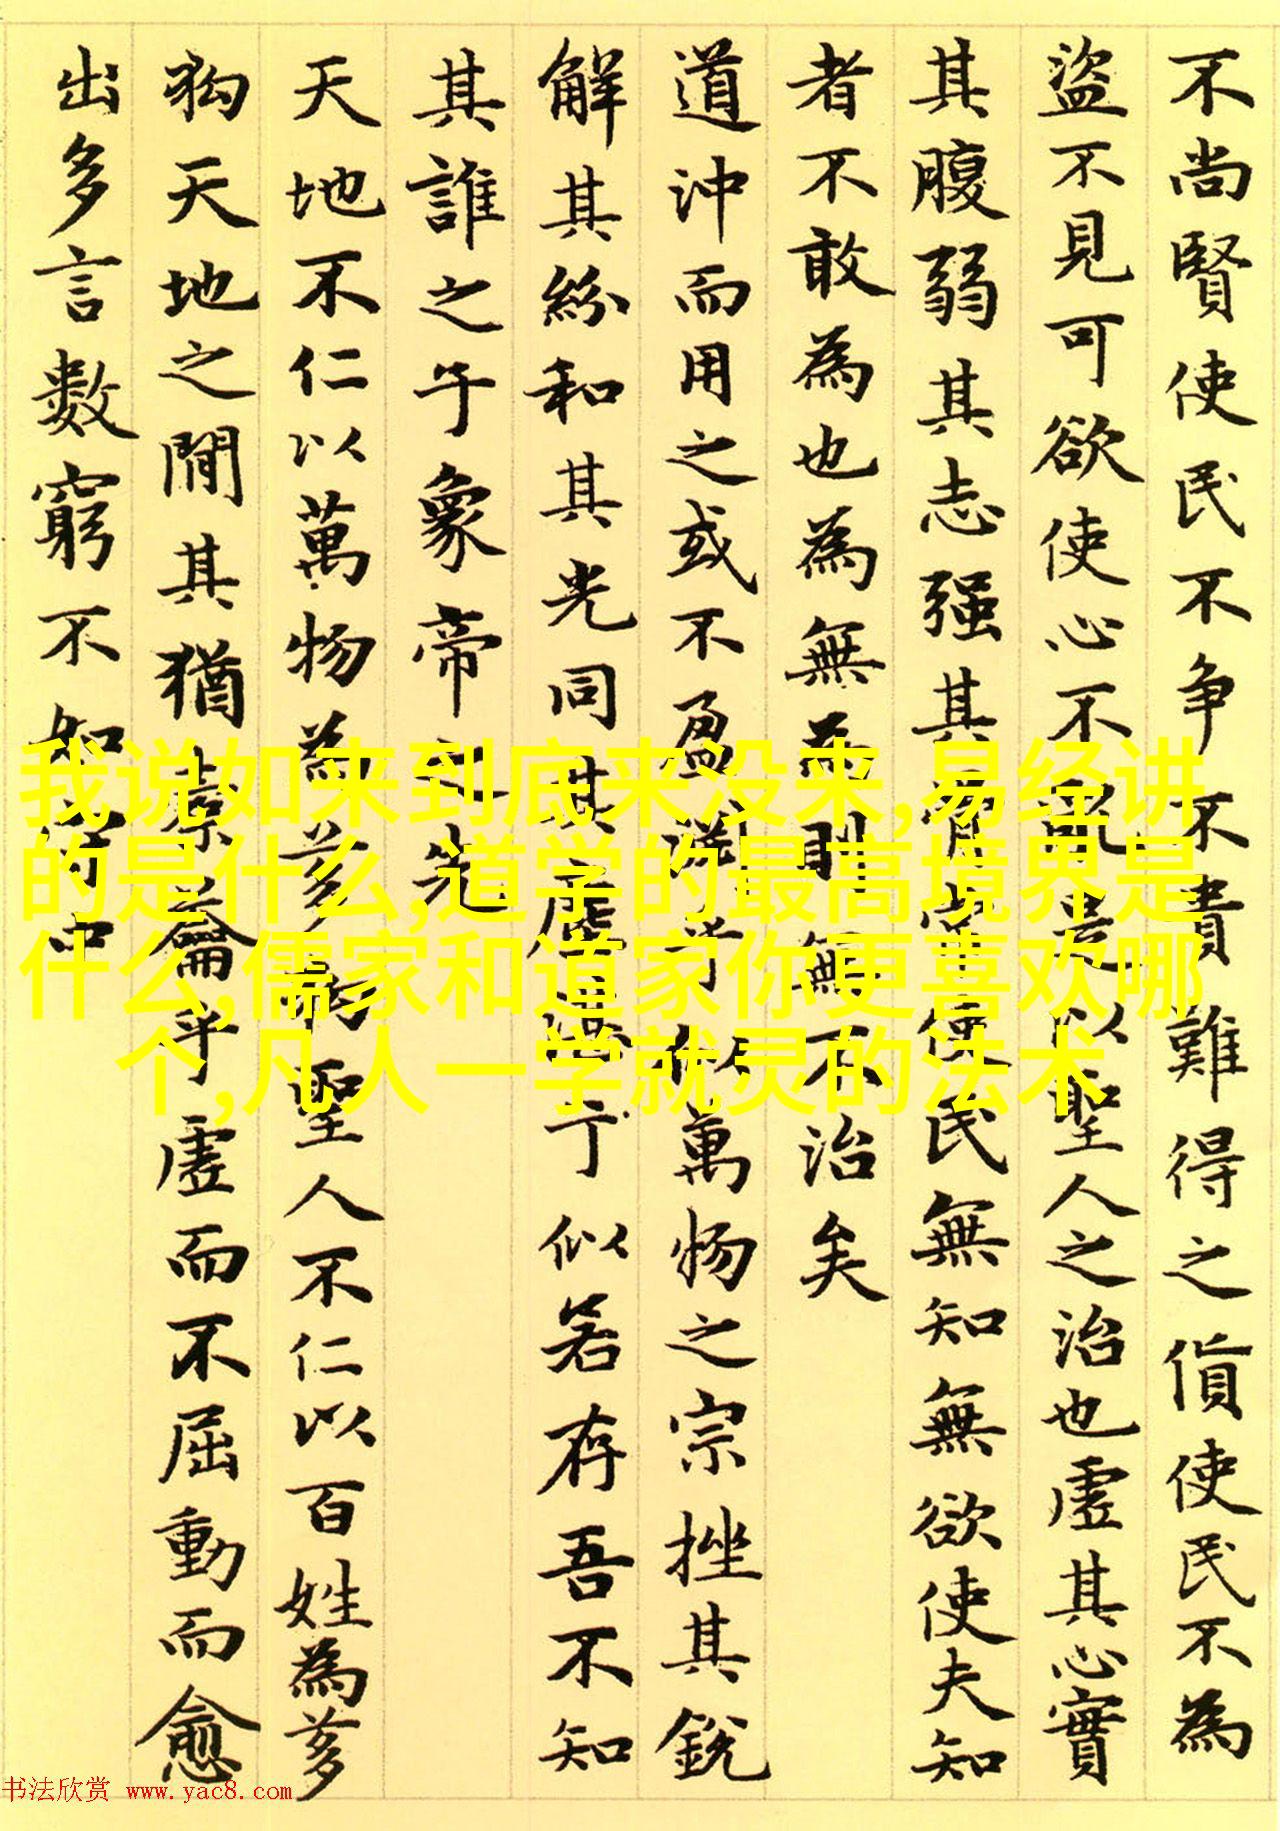 不尚賢使民不争不貴難得之貨使民不為
盜不見可欲使心不亂是以聖人之治也虛其心實
其腹弱其志强其骨常使民無知無欲使夫知
者不敢為也為無為則無不治矣
道沖而用之或不盈淵乎似萬物之宗挫其銳
解其紛和其光同其塵湛兮似若存吾不知
其誰之子象帝之先
天地不仁以萬物為芻狗聖人不仁以百姓為芻
狗天地之間其猶橐籥乎虛而不屈動而愈
出多言數窮不如守中
我说如来到底来没来,易经讲
的是什么,道学的最高境界是
什么,儒家和道家你更喜欢哪
个,凡人一学就灵的法术
书法欣赏 www.yac8.com